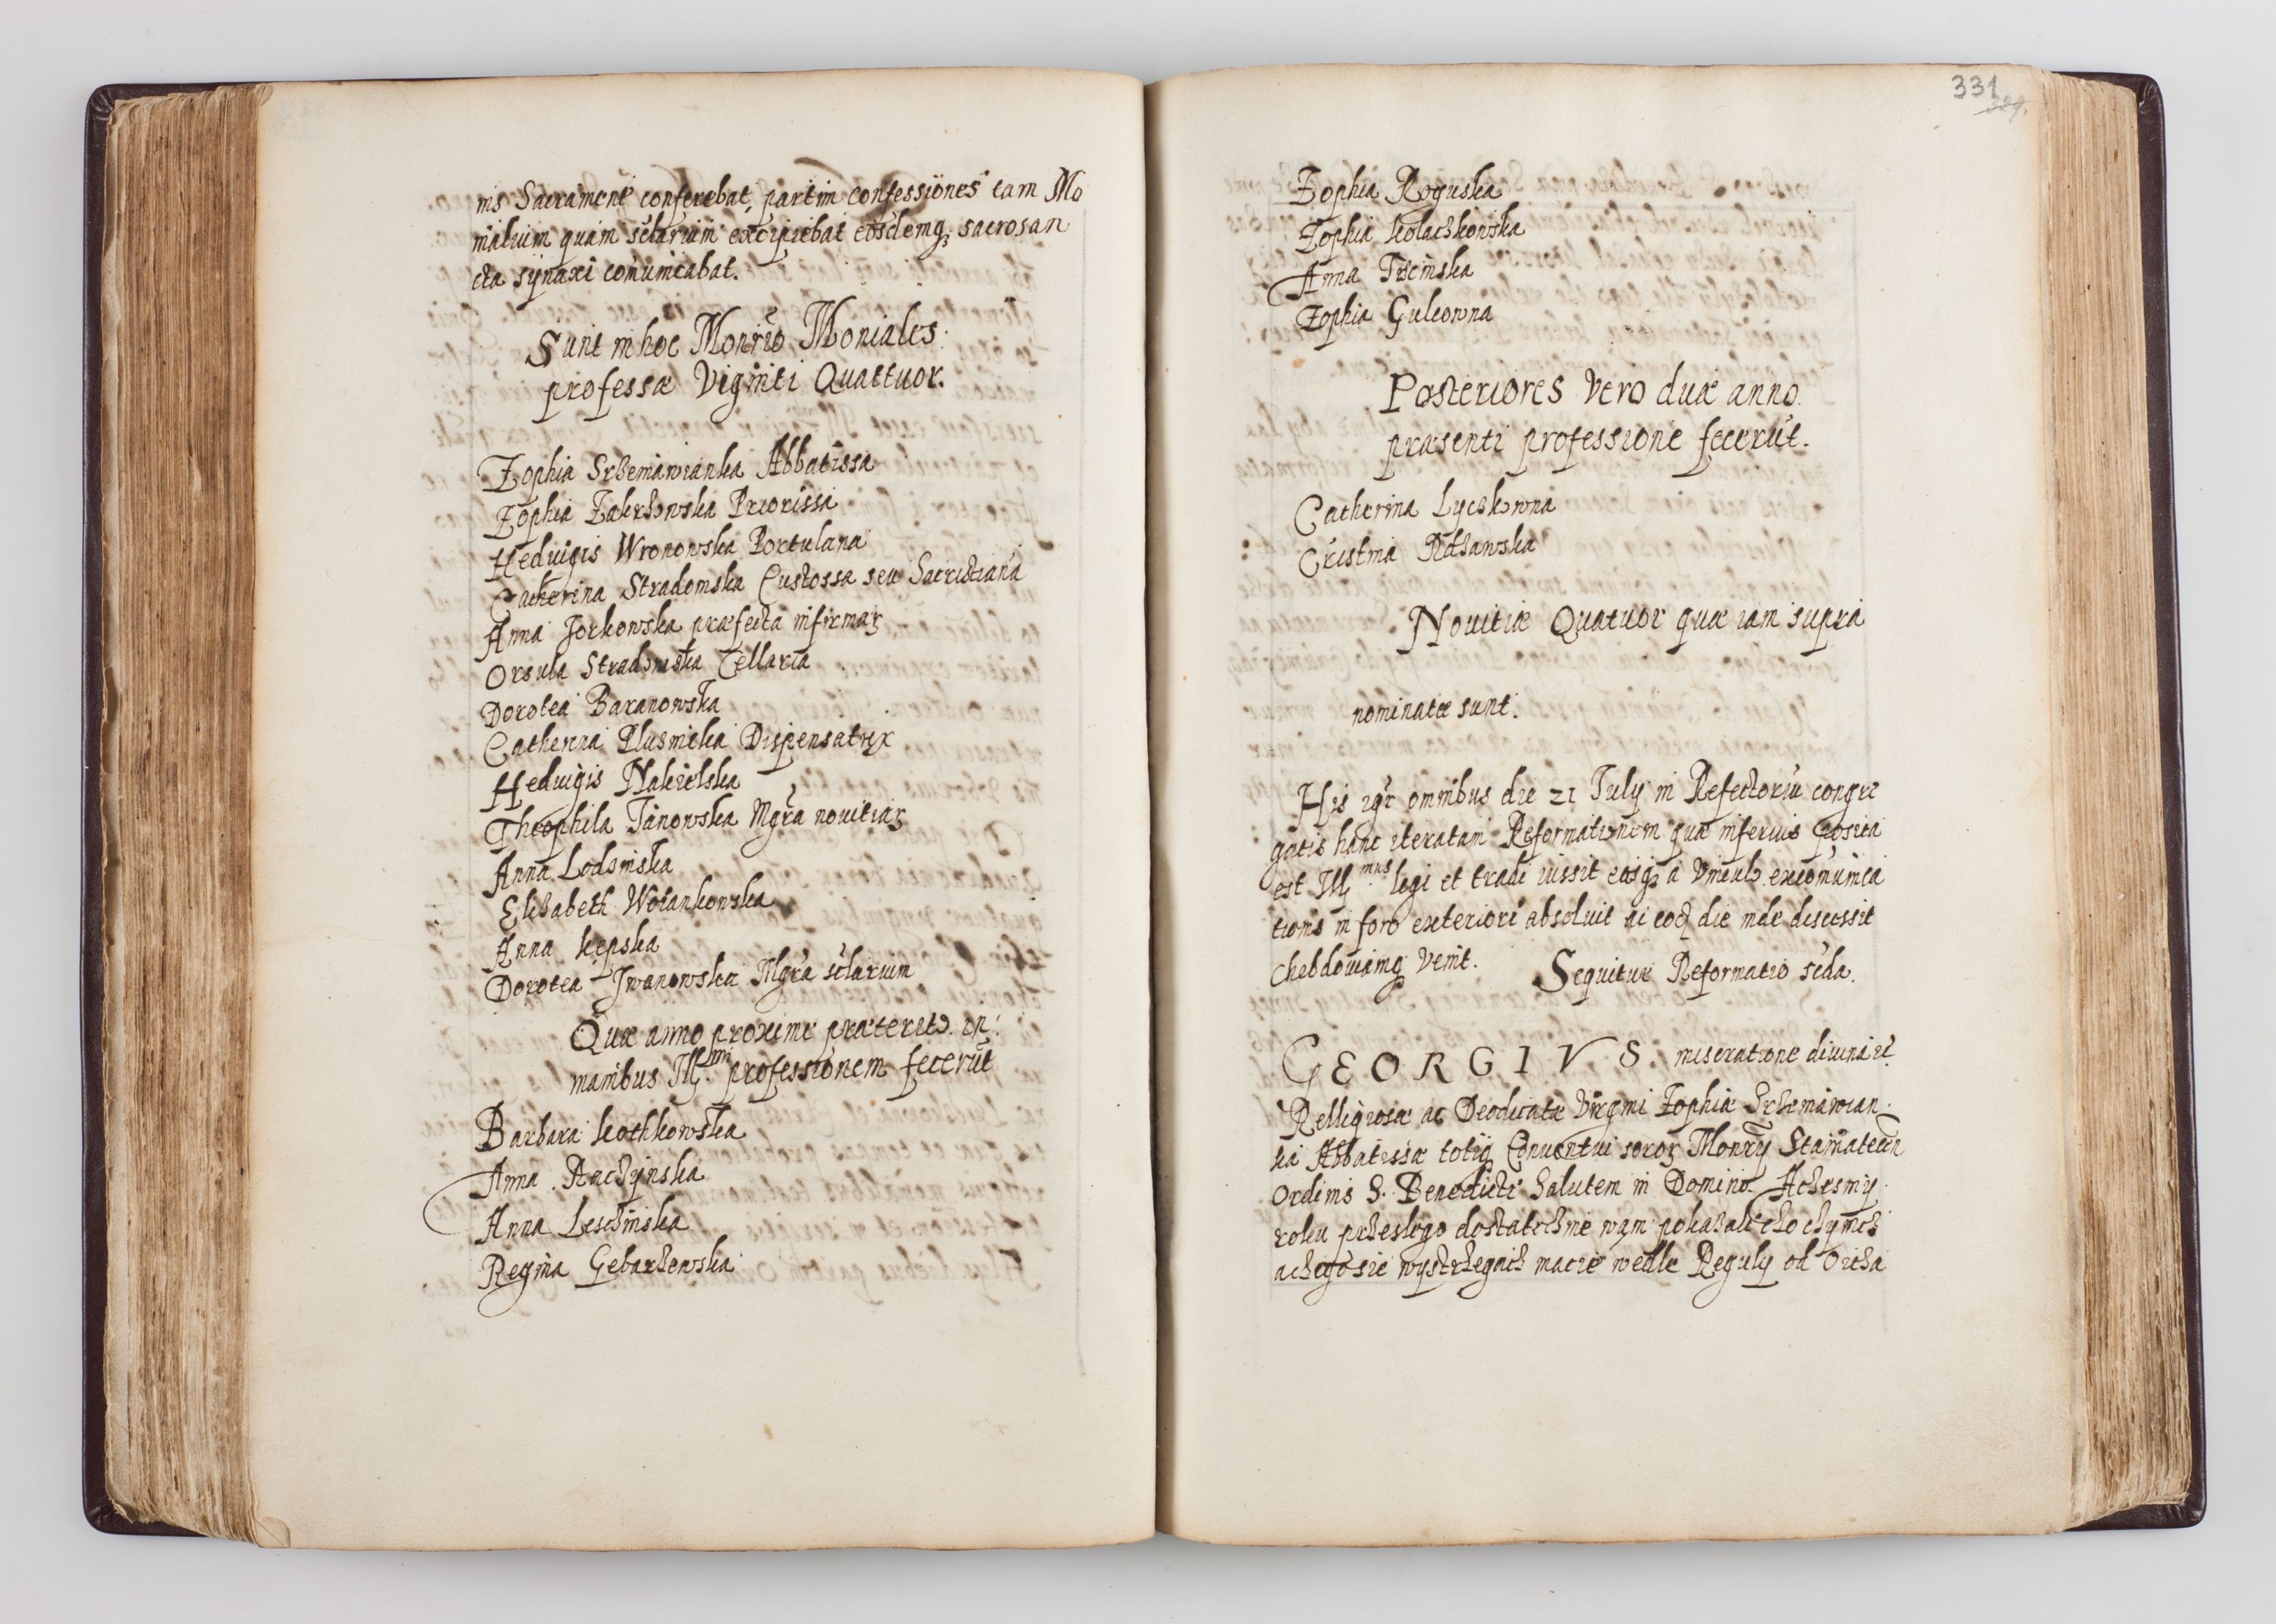 nis Sacrament conferebat, partim confessiones tam Mo
nialium quam sclarium excipiebat eosdemq; sacrosan
cta synaxi comunicabat.
Sunt in hoc Monrio Moniales
professæ Viginti Quattuor.
Zophia Srzeniawianka Abbatissa
Zophia Zakrzowska Priorissa
Hedvigis Wronowska Portulana
Catherina Stradomska Custossa seu Sacristiana
Anna Jorkowska præfecta infirmar
Orsula Stradomska Cellaria
Dorotea Baranowska
Catherina Plusnicka Dispensatrix
Hedvigis Nakielska
Theophila Janowska Mgra novitiar
Anna Lodzinska
Elizabeth Woiankowska
Anna Kępska
Dorotea Iwanowska Mgra sclarium
Quæ anno proxime præterito in
manibus Ill.mi professionem fecerūt
Barbara Kothkowska
Anna Raczynska
Anna Lesczinska
Regina Gebarzewska
331
329.
Zophia Roguska
Zophia Kolaczkowska
Anna Trzcinska
Zophia Gulczowna
Posteriores Vero duæ anno
præsenti professione fecerūt.
Catherina Lyczkowna
Cristina Rdzawska
Novitiæ Quatuor quæ iam supra
nominatæ sunt.
His igr omnibus die 21 July in Refectoriū congre
gatis hanc iteratam Reformationem quæ inferius posita
est Ill.mus legi et tradi iussit easq; a Vinculo excomunica
tionis in foro exteriori absolvit ac eod die inde discessit
Chebdoviamq; Venit. Sequitur Reformatio scda.
GEORGIVS miseratione divina etc
Relligiosæ ac Deodicatæ Virgini Zophiæ Srzeniawian
ka Abbatissæ totiq; Conventui soror Monrÿ Staniatecen
Ordinis S. Benedicti Salutem in Domino. Aczesmy
roku przeslego dostatecznie wam pokazali czo czynicz
aczego sie wystrzegacz macie wedle Reguly od Oicza